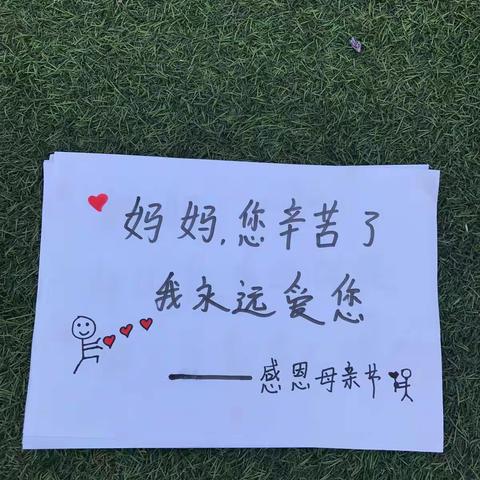 妈妈,您辛苦了
我永远爱您
——感恩母亲节